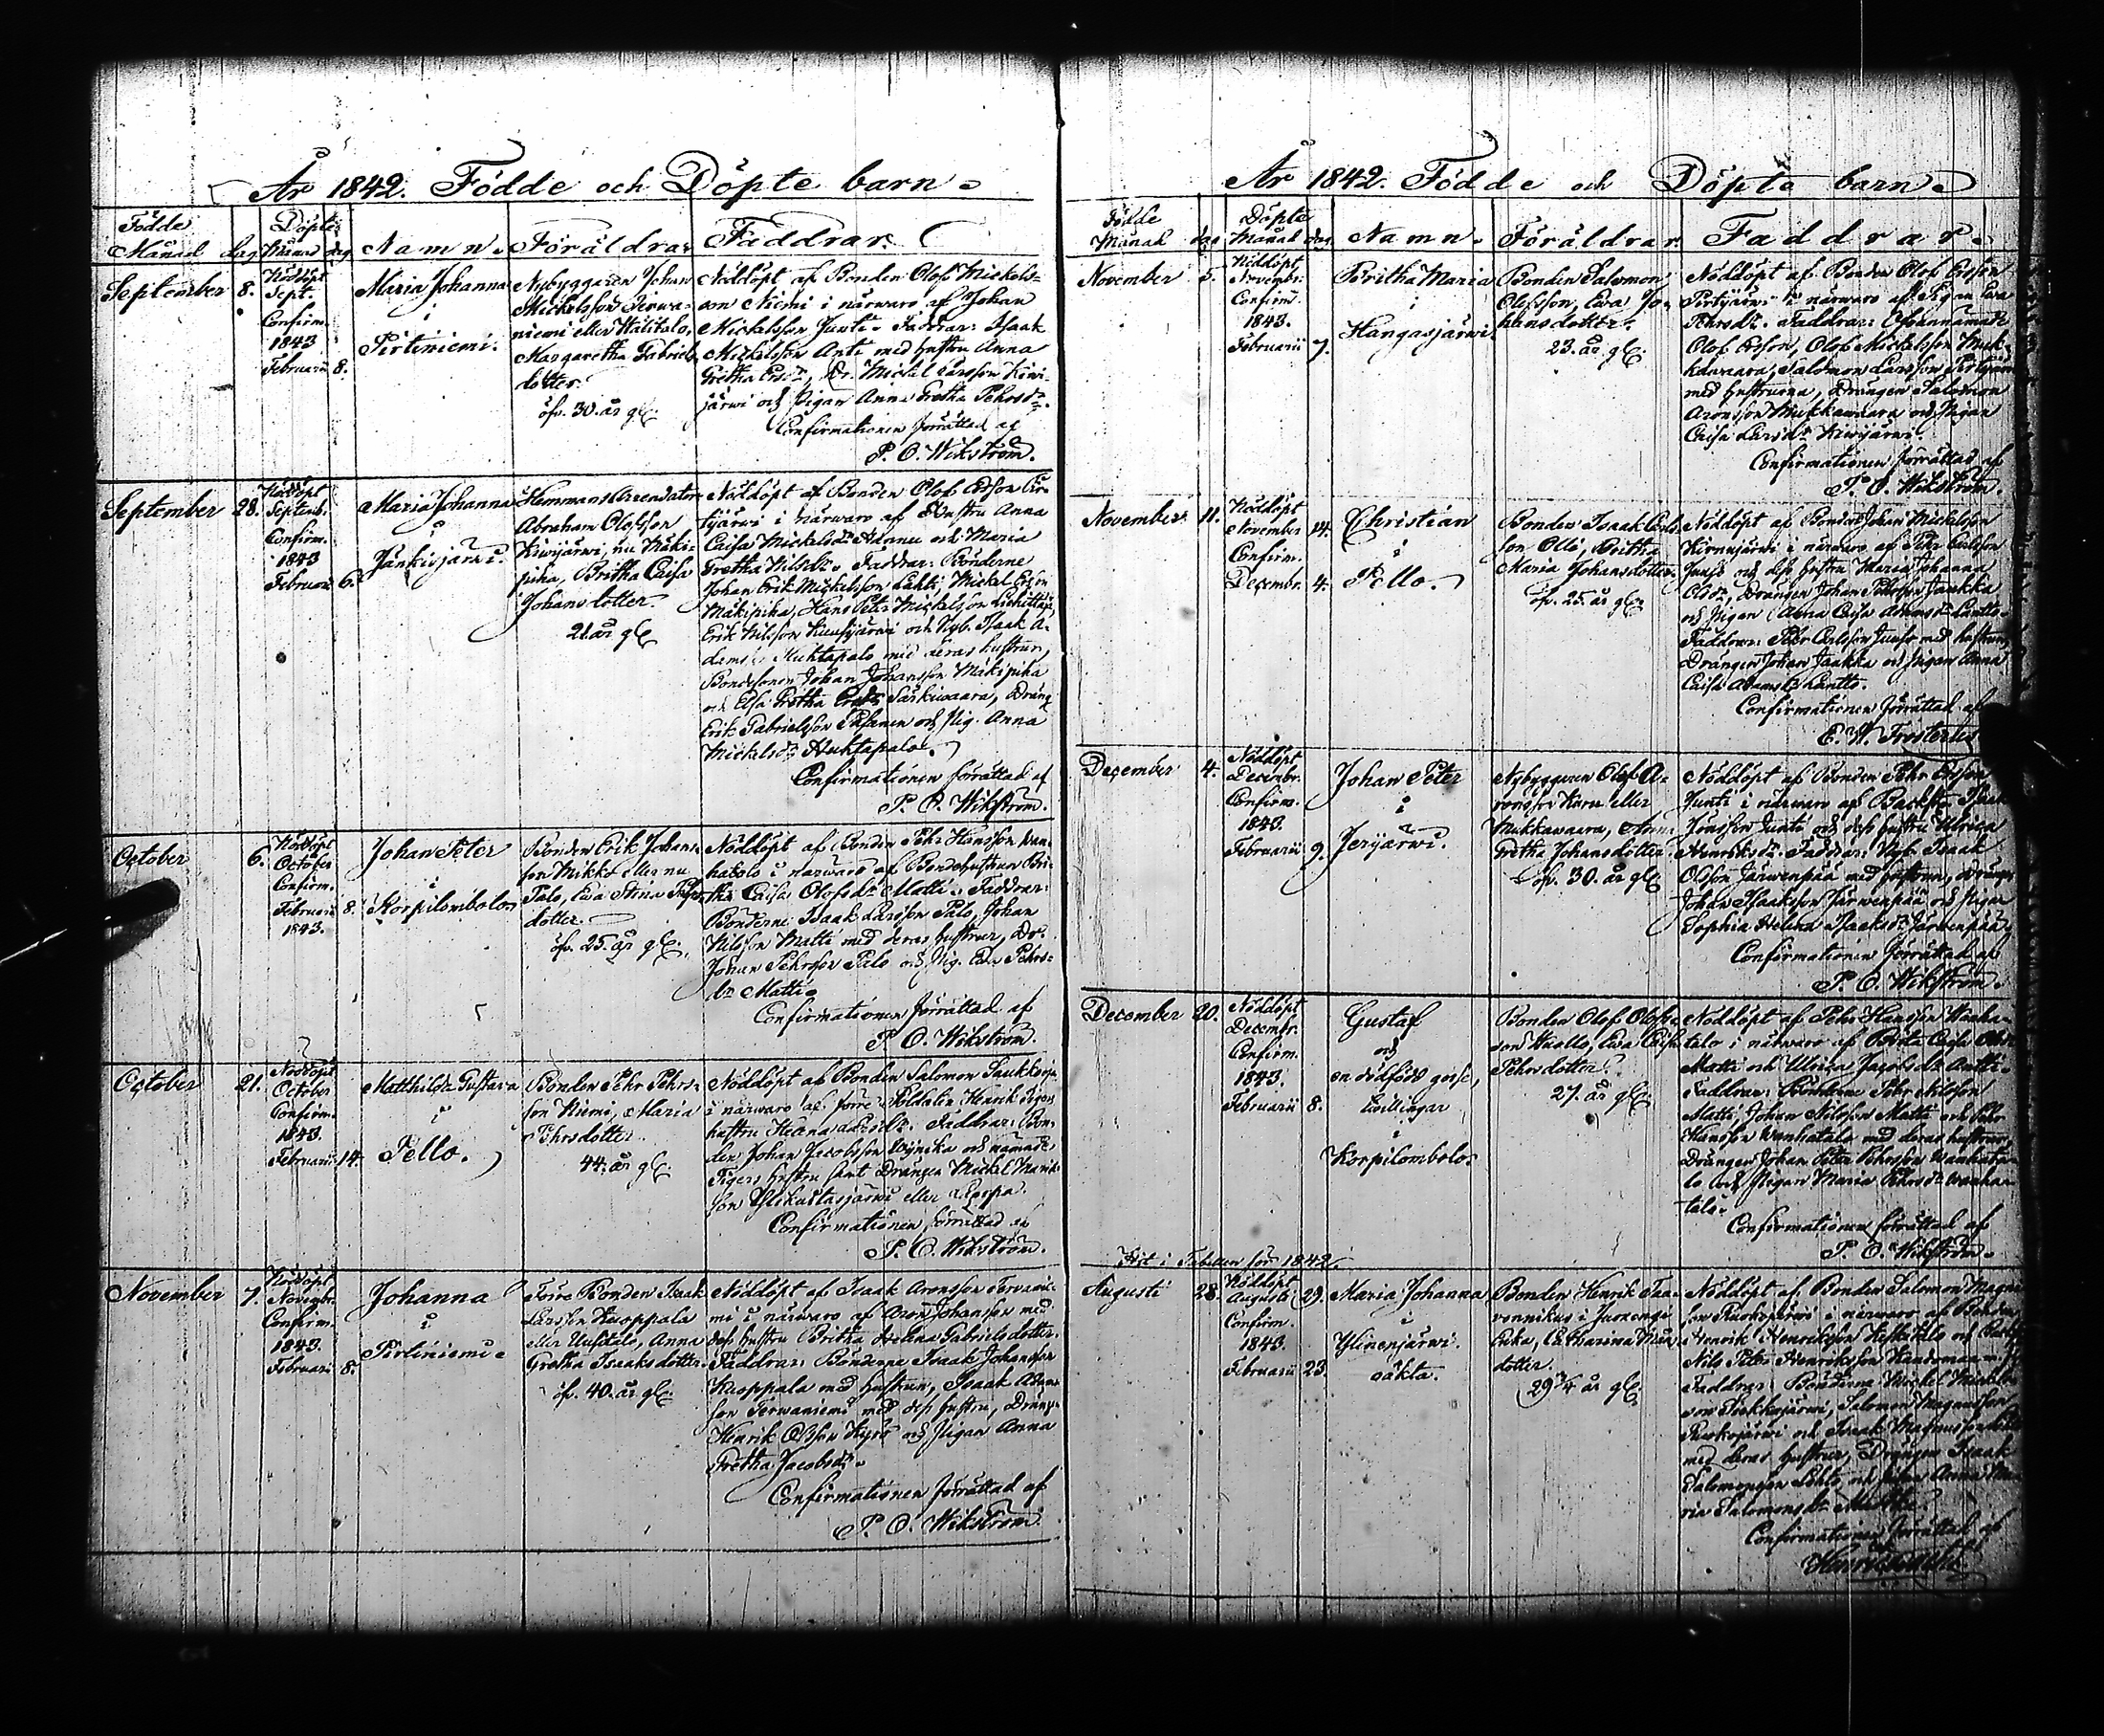 År 1842. Födde och Döpte barn.
Födde
Månad dag
Döpte
Månad dag
Namn. Föräldrar Faddrar.
September 8.
Nöddöpt
Sept.
Confirm.
1843
Februarii 8.
Maria Johanna
i
Pirtiniemi.
Nybyggaren Johan
Mickelsson
niemi eller
Margaretha Gabriels
dotter.
öfv. 30. år gl.
Nöddöpt af Bonden Olof Mickels-
son Niemi i närwaro af Johan
Mickelsson Junti. Faddrar: Isaak
Mickelsson Anti med hustru Anna
Gretha Ersdr, Dr. Mickel Larsson Kiwi-
järwi och Pigan Anna Gretha Pehrsdr.
Confirmationen förrättad af
P. O. Wikström.
September 28.
Nöddöpt
Septemb.
Confirm.
1843
Februarii 6.
Maria Johanna
i
Jänkisjärwi.
Hemmans Arrendatorn
Abraham Olofsson
Kiwijärwi, nu Mäki-
piha, Britha Caisa
Johansdotter.
21. år gl.
Nöddöpt af Bonden Olof Ersson Pir-
tijärwi i närwaro af Hustru Anna
Caisa Mickelsdr Adamu och Maria
Gretha Nilsdr. Faddrar: Bönderne
Johan Erik Mickelsson Lahti, Mickel Ersson
Mäkipiha, Hans Petr Mickelsson
Erik Nilsson Kuusijärwi och Nyb. Isaak A-
damss. Huhtapalo med deras hustrur,
Bondesonen Johan Johansson Mäkipiha
och Elsa Gretha Särkiwaara, Dräng
Erik Gabrielsson och Pig. Anna
Mickelsdr Huhtapalo.
Confirmationen förrättad af
P. O. Wikström.
October 6.
Nöddöpt
October
Confirm.
Februarii 8.
1843.
Johan Peter
i
Korpilombolo
Bonden Erik Johans-
son Mikko eller nu
Palo, Ewa Stina
dotter.
öfv. 25. år gl.
Nöddöpt af Bonden Pehr Hansson Wan-
hatalo i närwaro af Bondehustrun Bri-
tha Caisa Olofsdr Matti. Faddrar:
Bönderne Isaak Larsson Palo, Johan
Nilsson Matti med deras hustrur, Dr.
Johan Pehrsson Palo och Pig. Pehrs-
dr Matti.
Confirmationen förrättad af
P. O. Wikström.
October 21.
Nöddöpt
October
Confirm.
1843.
Februarii 14.
Matthilda Gustava
i
Pello.
Bonden Pehr Pehrs-
son Niemi, Maria
Pehrsdotter
44. år gl.
Nöddöpt af Bonden Salomon
i närwaro af förre Soldaten Henrik Tigers
hustru Helena Larsdr. Faddrar: Bon-
den Johan Jacobsson och nämnde
Tigers hustru samt Drängen Mickel
son eller
Confirmationen förrättad af
P. O. Wikström.
November 7.
Nöddöpt
Novembr.
Confirm.
1843.
Februarii 8.
Johanna
i
Pirtiniemi.
Förre Bonden Isaak
Larsson Kuoppala
eller Uusitalo, Anna
Gretha Isaksdotter.
öf. 40. år gl.
Nöddöpt af Isaak Aronsson Terwanie-
mi i närwaro af Aron Johansson med
dess hustru Britha Helena Gabrielsdotter.
Faddrar: Bönderne Isaak Johansson
Kuoppala med hustrun, Isaak
son Terwaniemi med dess hustru, Dräng.
Henrik Olsson Kyrö och Pigan Anna
Gretha Jacobsdr.
Confirmationen förrättad af
P. O. Wikström.
År 1842. Födde och Döpta barn.
Födde
Månad dag
Döpte
Månad dag
Namn. Föräldrar Faddrar.
November 5.
Nöddöpt
Novembr.
Confirm.
1843.
Februarii 7.
Britha Maria
i
Hangasjärwi
Bonden Salomon
Olofsson, Ewa Jo-
hansdotter.
23. år gl.
Nöddöpt af Bonden Olof Ersson
Pirtijärwi i närwaro af Pigan Ewa
Pehrsdr. Faddrar: Ofvannämnde
Olof Ersson, Olof Mickelsson Muk-
kawaara, Salomon Larsson Pirtijärwi
med hustrurna, Drängen Salomon
Aronsson Mukkawaara och Pigan
Caisa Larsdr Kiwijärwi.
Confirmationen förrättad af
P. O. Wikström.
November 11.
Nöddöpt
November 14.
Confirm.
Decembr. 4.
Christian
i
Pello.
Bonden Isaak Carls-
son Olli, Britha
Maria Johansdotter
öfv. 25. år gl.
Nöddöpt af Bonden Johan Mickelsson
Kirnujärwi i närwaro af Pehr Carlsson
Juuso och dess hustru Maria Johanna
Olsdr, Drängen Johan Pehrsson Jaakka
och Pigan Anna Caisa Adamsdr Lantto.
Faddrar: Pehr Carlsson Juuso med hustrun,
Drängen Johan Jaakka och Pigan Anna
Caisa Adamsdr Lantto.
Confirmationen förrättad af
E. W. Frosterus
December 4.
Nöddöpt
Decembr.
Confirm.
1843.
Februarii 9.
Johan Peter
i
Jerijärwi.
Nybyggaren Olof A-
ronsson Karu eller
Mukkawaara, Anna
Gretha Johansdotter.
öfv. 30. år gl.
Nöddöpt af Bonden Pehr Ersson
Junti i närwaro af
Jönsson Junti och dess hustru Ulrica
Henriksdr. Faddrar: Nyb. Isaak
Olsson Järwenpää med hustrun, Dräng
Johan Isaaksson Järwenpää och Pigan
Sophia Helena Isaaksdr Järwenpää.
Confirmationen förrättad af
P. O. Wikström.
December 20.
Nöddöpt
Decembr.
Confirm.
1843.
Februarii 8.
Gustaf
och
en dödfödd gosse,
twillingar
i
Korpilombolo.
Bonden Olof Olofs-
son Ewa Caisa
Pehrsdotter.
27. år gl.
Nöddöpt af Pehr Hansson Wanha-
talo i närwaro af Britha Caisa
Matti och Ulrica Jacobsdr Antti.
Faddrar: Bönderne Pehr Nilsson
Matti, Johan Nilsson Matti och Pehr
Hansson Wanhatalo med deras hustrur,
Drängen Johan Peter Pehrsson Wanhata-
lo och Pigan Maria Pehrsdr Wanha-
talo.
Confirmationen förrättad af
P. O. Wikström.
i Tabellen för 1842.
Augusti 28.
Nöddöpt
Augusti 29.
Confirm.
1843.
Februarii 23.
Maria Johanna
i
Ylinenjärwi.
oäkta.
Bonden Henrik
i Juoxengi
Catharina
dotter.
29 1/4 år gl.
Nöddöpt af Bonden Salomon
son Ruokojärwi i närwaro af
Henrik Henriksson och
Nils Peter Henriksson
Faddrar: Bönderne Mickel
son Salomon Magnusson
Ruokojärwi och Isaak Magnusson
med deras hustrur, Drängen Isaak
Salomonsson och Pigan Anna Ma-
ria Salomonsdr
Confirmationen förrättad af